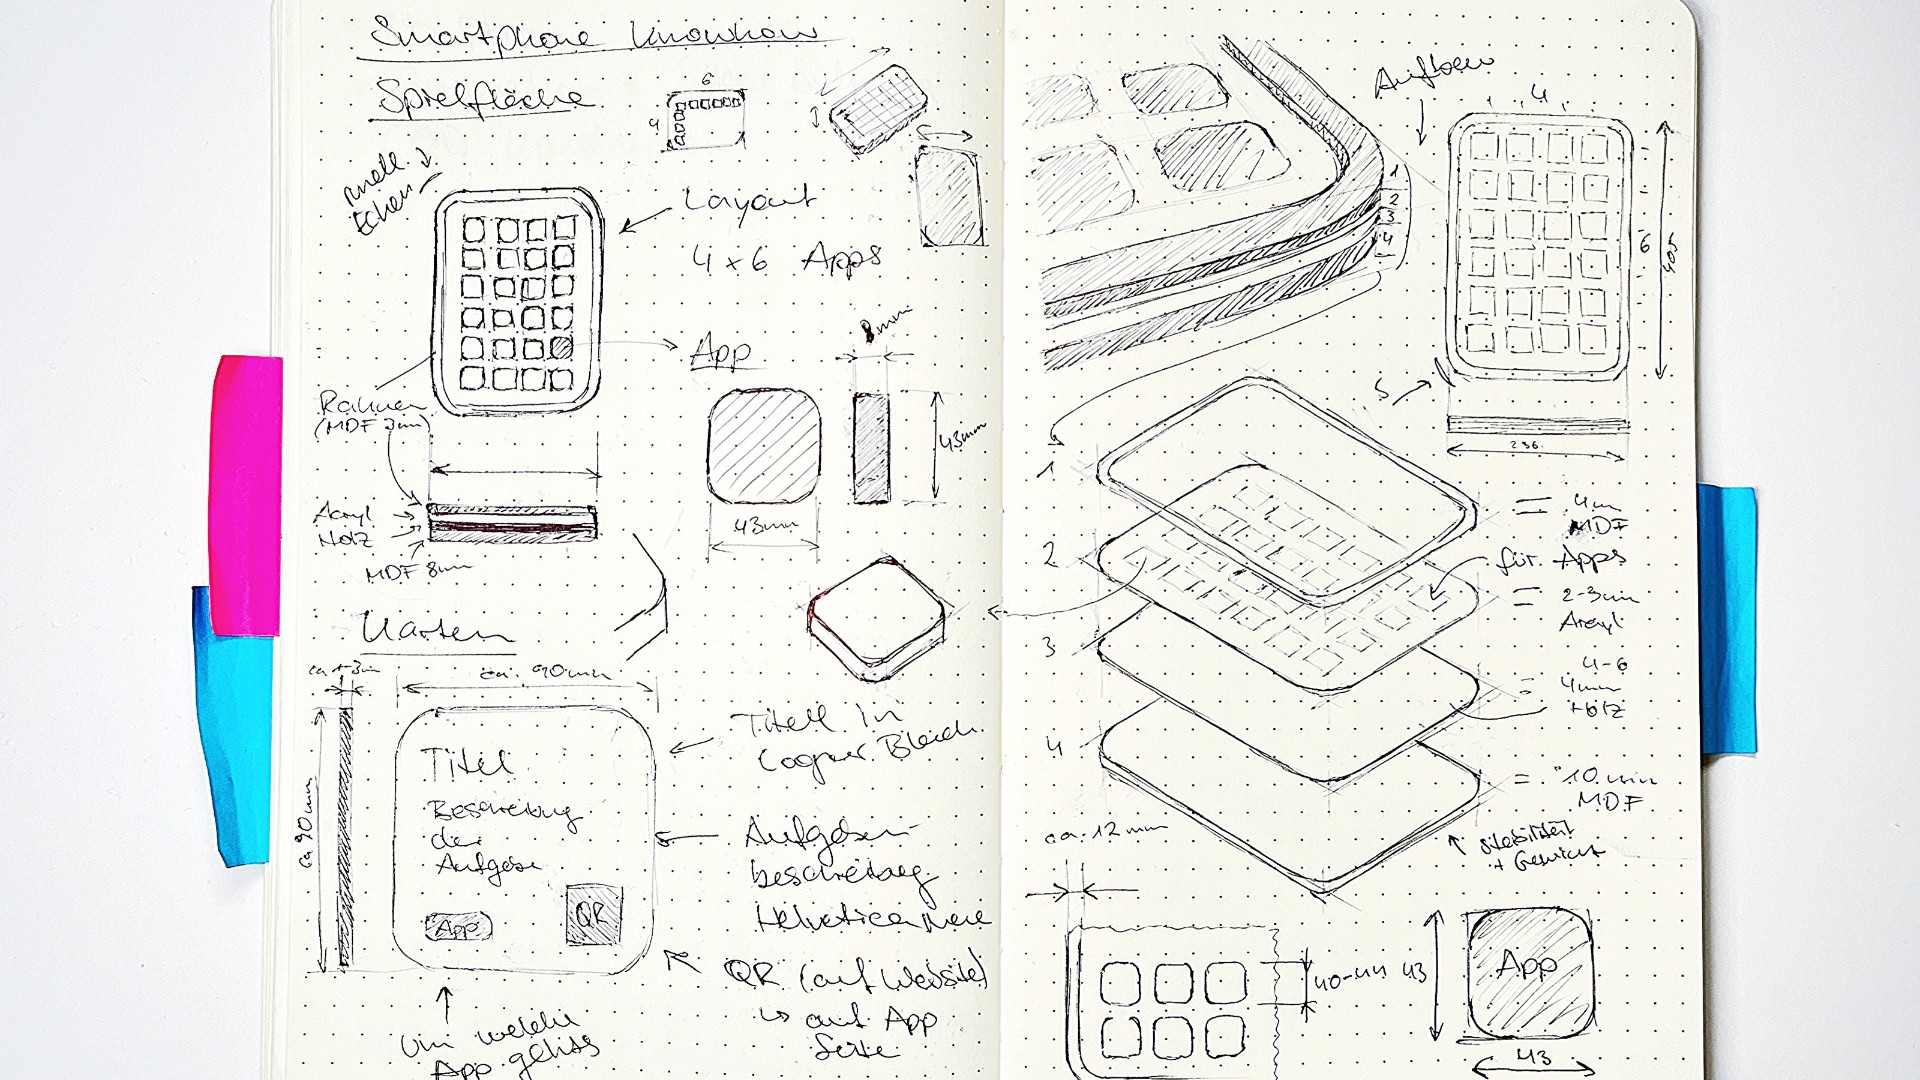 Smartphone Knowhow
Spielfläche
6
4
Ecken
Layout
4 x 6 Apps
App
8mm
Rahmen
(MDF 3mm)
43mm
43mm
Acryl
Holz
MDF 8mm
Karten
ca. 90mm
ca 90mm
Titel
Beschreibung
der
Aufgabe
App
QR
Titell in
Cooper Black
Aufgaben-
beschreibung
Helvetica Neue
QR (auf Website)
↳ auf App
Seite
Um welche
App gehts
Aufbau
1
2
3
4
4
6
5
236
1
= 4mm
MDF
für Apps
2
= 2-3mm
Acryl
3
= 4-6
4mm
Holz
4
= 10 mm
MDF
Stabilität
+ Gewicht
ca. 12 mm
40-44
43
App
43